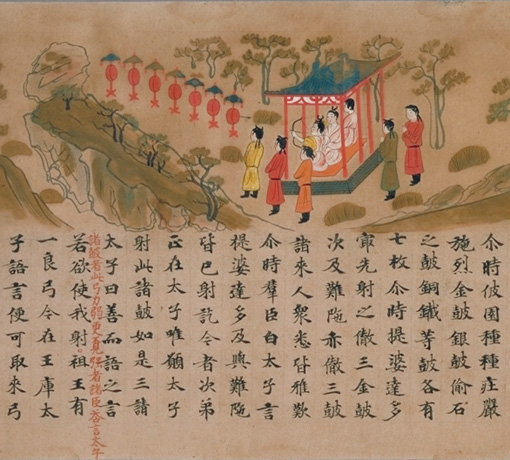 尒時彼園種種莊嚴
施烈金皷銀皷偷石
之皷銅鐵等皷各有
七枚尒時提婆達多
㝡先射之徹三金皷
次及難陁亦徹三皷
諸來人衆悉皆雅歎
尒時羣臣白太子言
提婆達多及與難陁
皆已射訖今者次苐
正在太子唯願太子
射此諸皷如是三請
太子曰善而語之言
諸皷者此弓力弱更覓強者諸臣答言太子
若欲使我射祖王有
一良弓今在王庫太
子語言便可取來弓